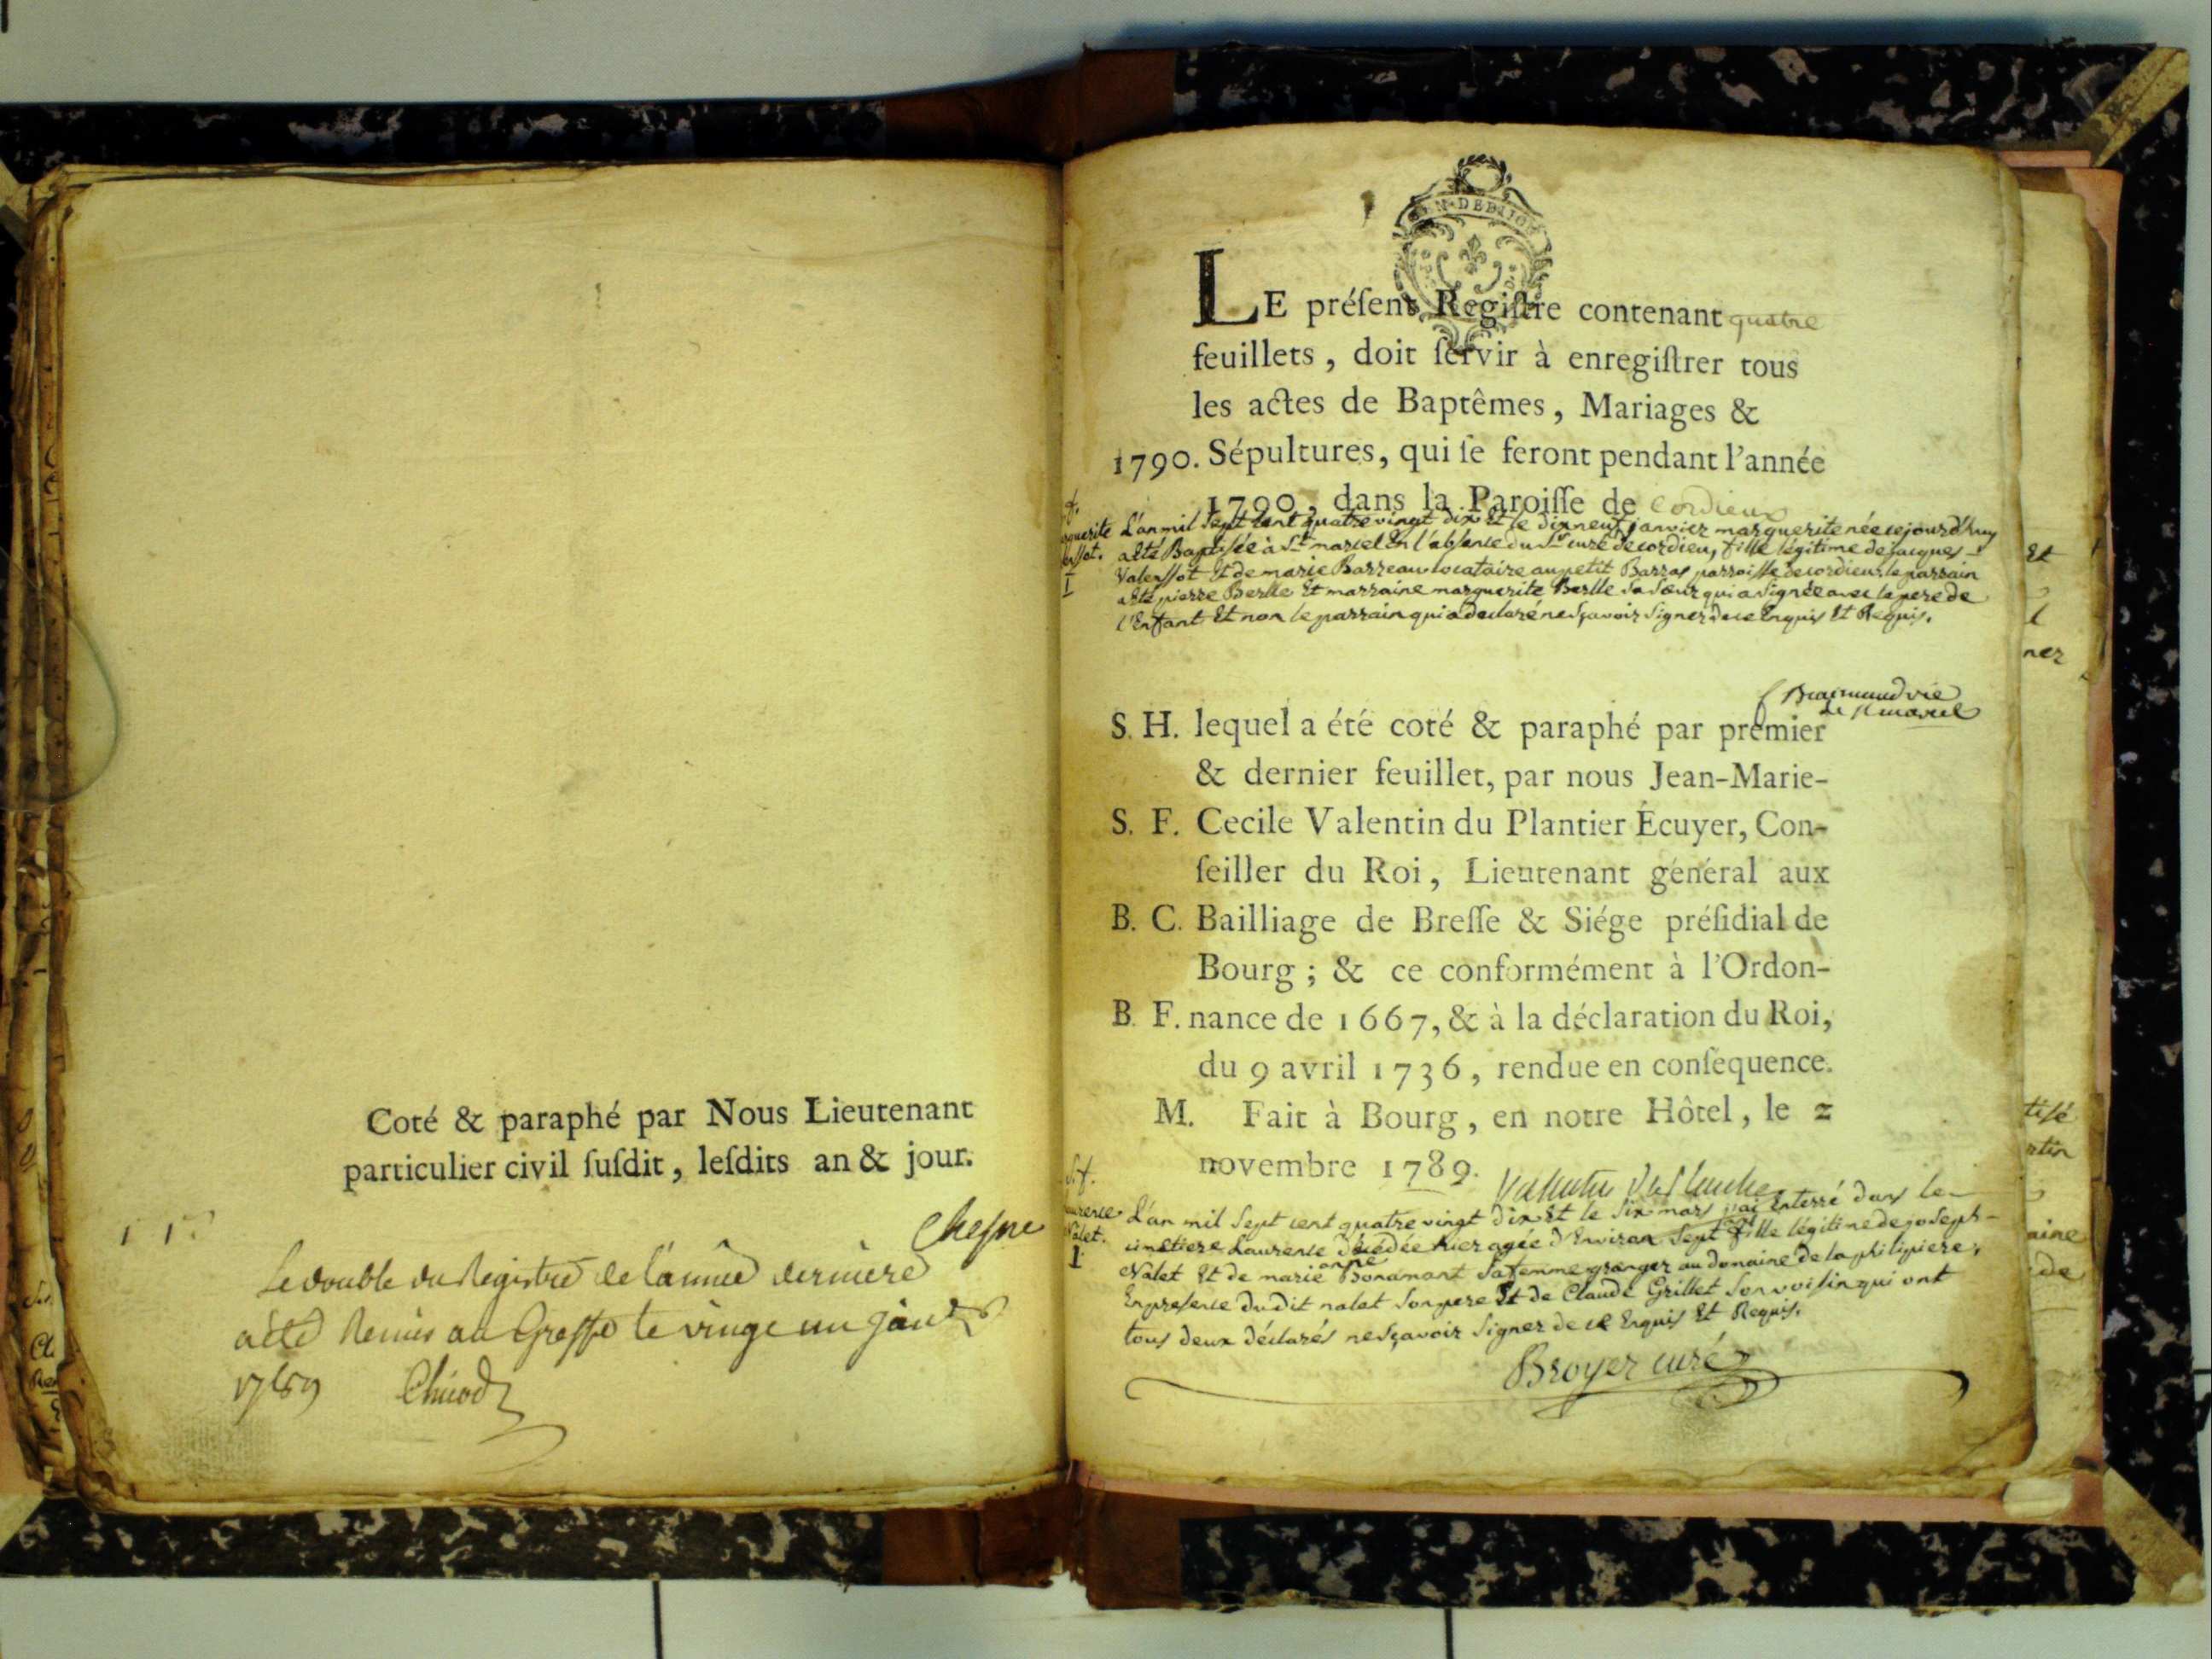 Coté & paraphé par Nous Lieutenant
particulier civil ſuſdit, leſdits an & jour.
Cheſne
Le double du Registre de l'année derniere
a été Remis au Greffe le vingt un
1789
LE préſent Regiſtre contenant quatre
feuillets, doit ſervir à enregiſtrer tous
les actes de Baptêmes, Mariages &
1790. Sépultures, qui ſe feront pendant l'année
1790, dans la Paroiſſe de Cordieux
L'an mil Sept cent quatre vingt dix Et le dix neuf janvier marguerite née cejourd'huy
a été Baptisée à St marcel En l'absence du Sr curé de cordieu, fille légitime de jacques
Valenssot Et de marie Barreau locataire au petit Barras parroisse de cordieux le parrain
a été pierre Berlle Et marraine marguerite Berlle Sa Sœur qui a Signée avec le pere de
l'Enfant Et non le parrain qui a declaré ne Sçavoir Signer de ce Enquis Et Requis.
de St marcel
S. H. lequel a été coté & paraphé par premier
& dernier feuillet, par nous Jean-Marie-
S. F. Cecile Valentin du Plantier Écuyer, Con-
ſeiller du Roi, Lieutenant général aux
B. C. Bailliage de Breſſe & Siége préſidial de
Bourg; & ce conformément à l'Ordon-
B. F. nance de 1667, & à la déclaration du Roi,
du 9 avril 1736, rendue en conſequence.
M. Fait à Bourg, en notre Hôtel, le 2
novembre 1789.
L'an mil Sept cent quatre vingt dix Et le Six mars j'ai Enterré dans le
cimetiere Laurence décédée hier agée d'Environ Sept fille légitime de joseph
Nalet Et de marie anne Bonamant Sa femme granger au domaine de la philipiere,
En presence dudit nalet Son pere Et de Claude Grillet Son voisin qui ont
tous deux déclarés ne Sçavoir Signer de ce Enquis Et Requis.
Broyer curé